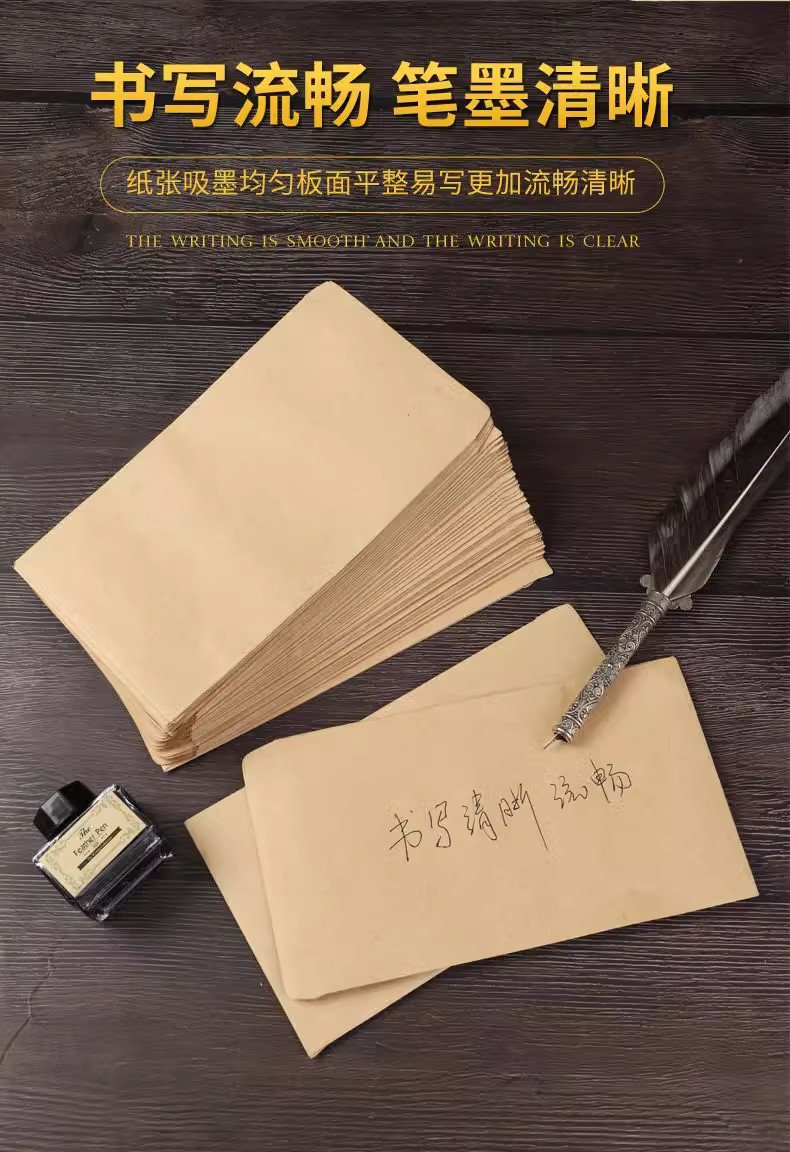 书写流畅 笔墨清晰
纸张吸墨均匀板面平整易写更加流畅清晰
THE WRITING IS SMOOTH AND THE WRITING IS CLEAR
书写清晰 流畅
The
Feather Pen